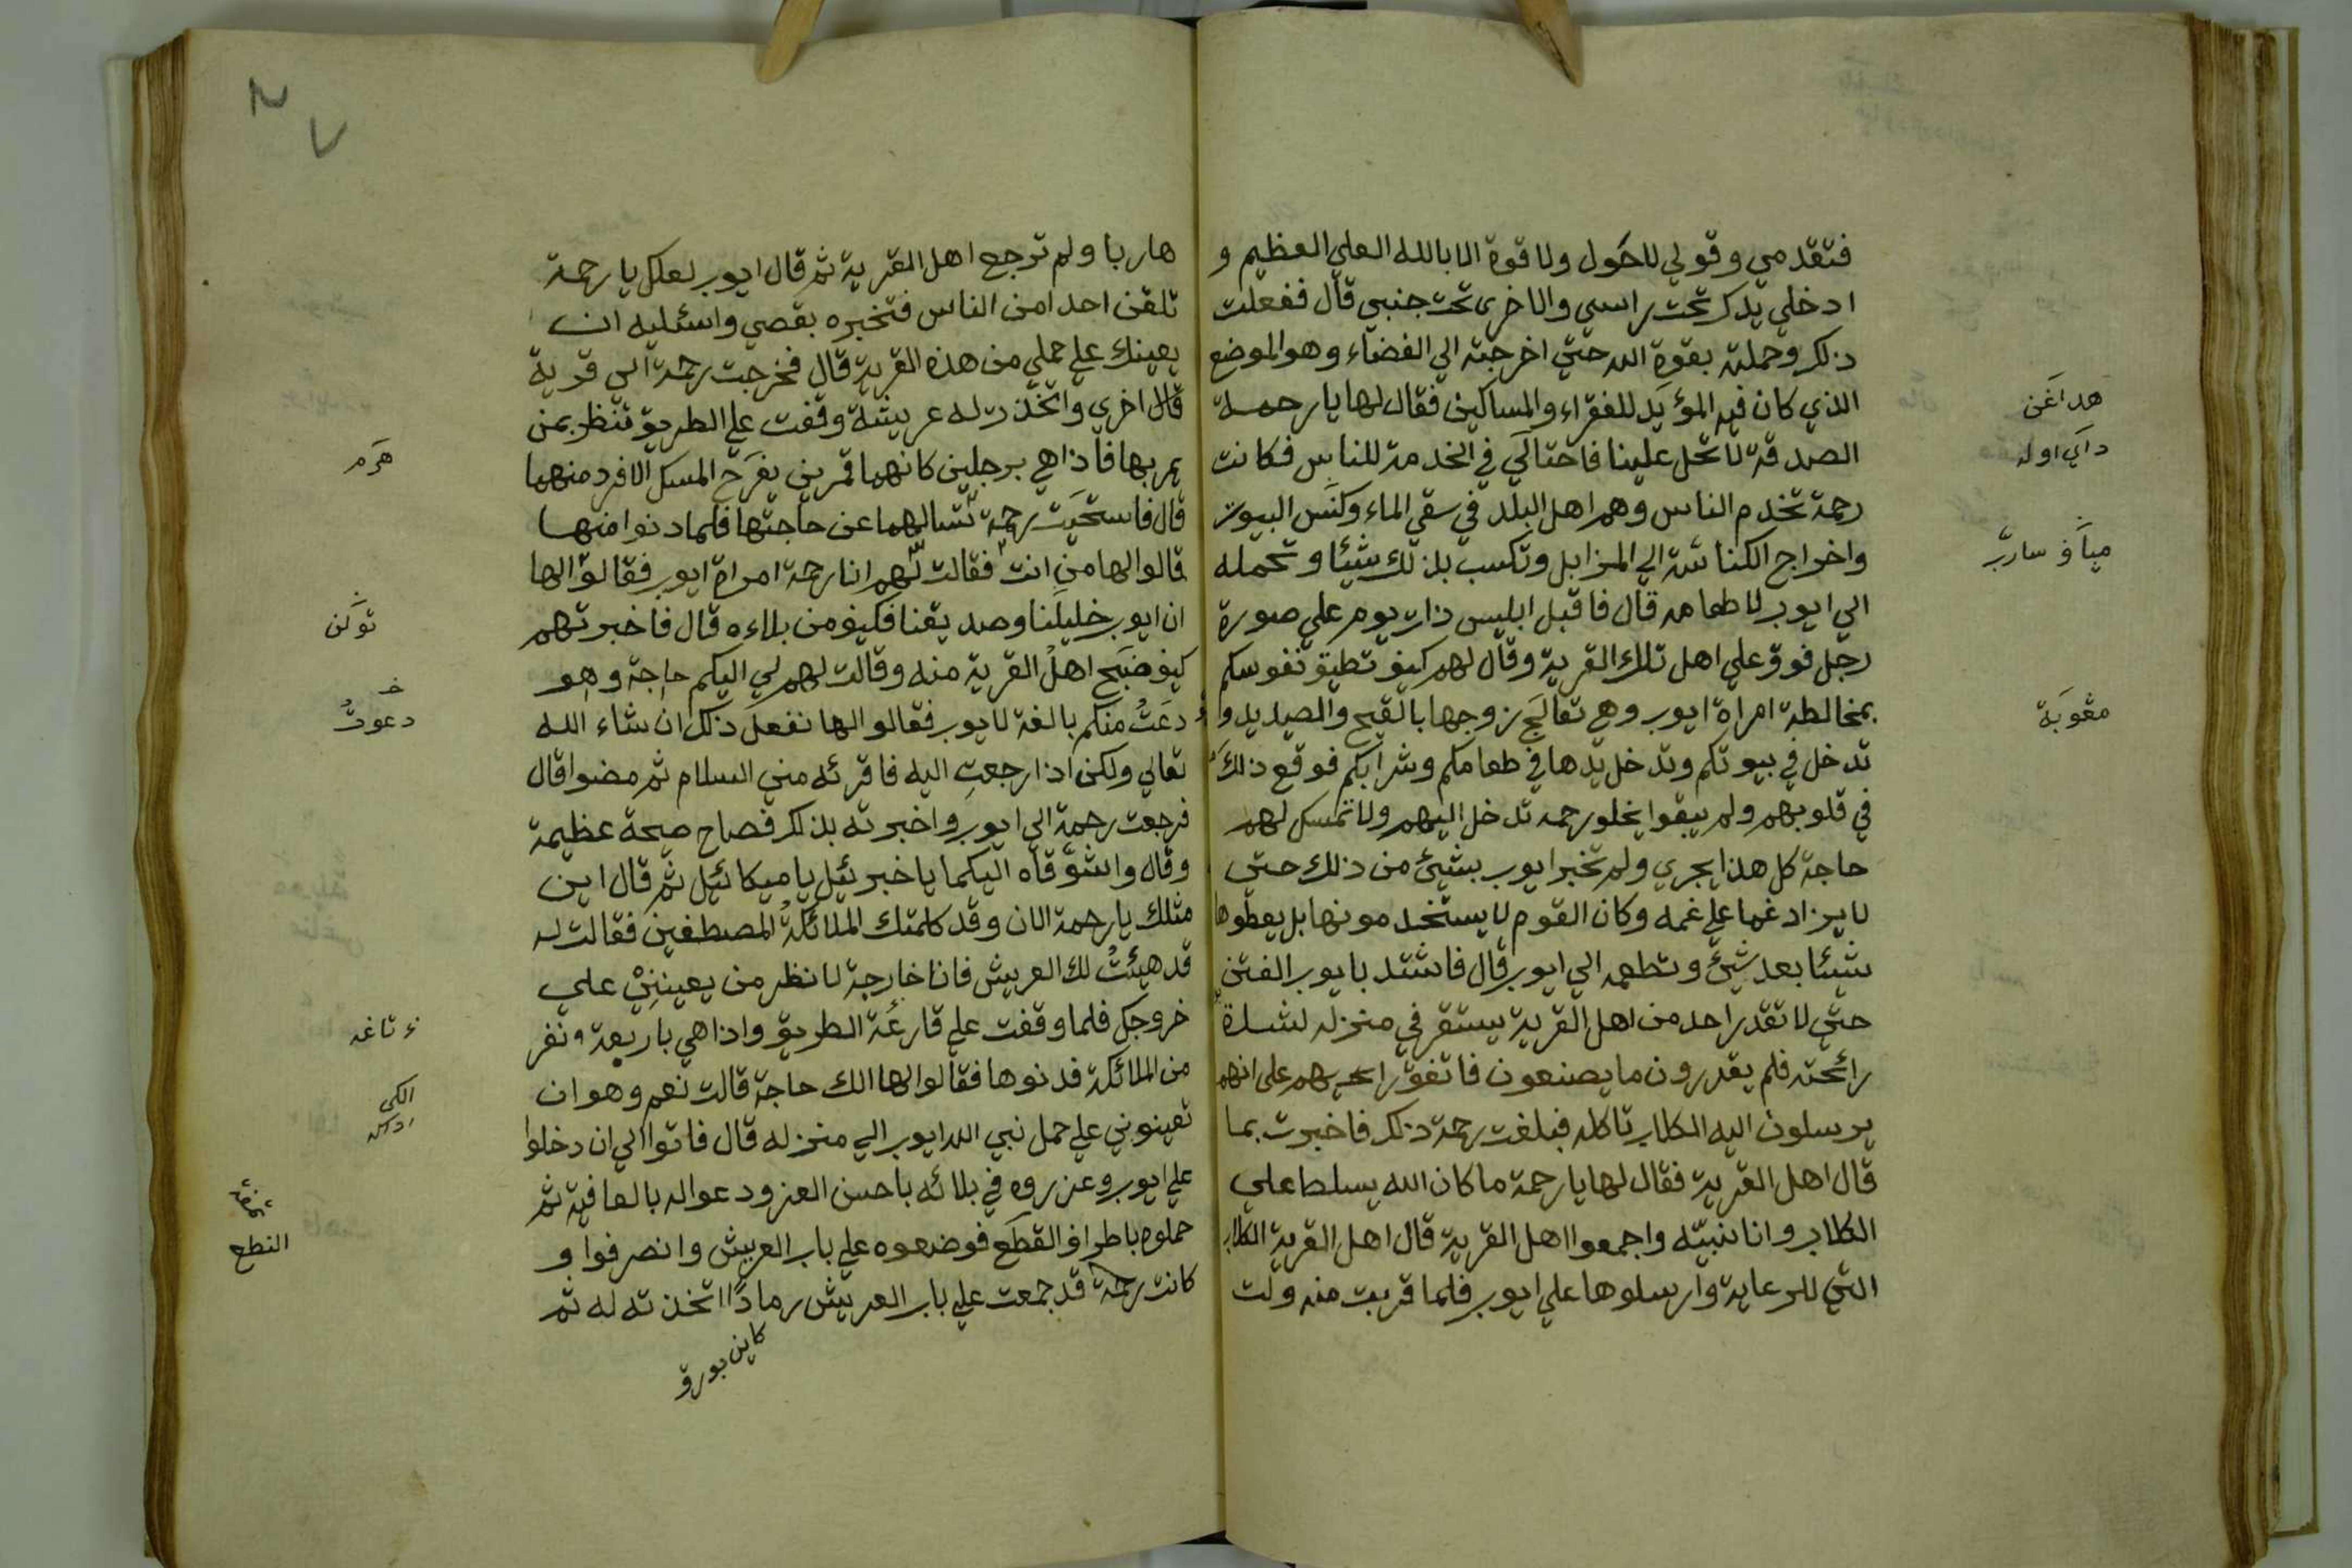 فتقدمي وقولي لاحَول ولا قوة الا بالله العلي العظيم و
ادخلي يدك تحت راسي والاخرى تحت جنبي قال ففعلت
ذلك وحملته بقوة الله حتي اخرجته الي الفضاء وهو الموضع
الذي كان فيه المؤيد للفقراء والمساكين فقال لها يا رحمة
الصدقة لا تحل علينا فاحتالي في الخدمة للناس فكانت
رحمة تخدم الناس وهم اهل البلد في سقي الماء وكنس البيوت
واخراج الكناسة الي المزابل وتكسب بذلك شيئا وتحمله
الي ايوب لاطعامه قال فاقبل ابليس ذات يوم علي صورة
رجل فوق علي اهل تلك القرية وقال لهم كيف تطيق نفوسكم
بمخالطة امراة ايوب وهي تعالج زوجها بالقيح والصديد و
تدخل في بيوتكم وتدخل يدها في طعامكم وشرابكم فوقع ذلك
في قلوبهم ولم يبقوا يخلو رحمه تدخل اليهم ولا تمسك لهم
حاجة كل هذا يجري ولم تخبر ايوب بشيئ من ذلك حتي
لا يزاد غما علي غمه وكان القوم لا يستخدمونها بل يعطوها
شيئا بعد شيئ وتطعمه الي ايوب قال فاشتد بايوب الفتن
حتي لا تقدر احد من اهل القرية يستقر في منزله لشدة
رائحته فلم يقدرون ما يصنعون فاتفق رايهم على انهم
يرسلون اليه الكلاب تاكله فبلغت رحمة ذلك فاخبرت بما
قال اهل القرية فقال لها يا رحمة ما كان الله يسلط علي
الكلاب وانا نبيّه واجمعوا اهل القرية قال اهل القرية الكلاب
التي للرعاية وارسلوها علي ايوب فلما قربت منه ولت
هداغن
داي اوله
مياف سارب
مڠوبة
هاربا ولم ترجع اهل القرية ثم قال ايوب لعلك يا رحمة
تلقن احدا من الناس فتخبره بقصي واسئليه ان
يعينك علي حملي من هذه القرية قال فخرجت رحمة الي قرية
قال اخري واتخذت له عريشة وقفت علي الطريق تنظر بمن
يمر بها فاذا هي برجلين كانهما قمرين يفرح المسك الافرد منهما
قال فاستحيت رحمة تسالهما عن حاجتها فلما دنوا منها
قالوا لها من انت فقالت لهم انا رحمة امراة ايوب فقالوا لها
ان ايوب خليلنا وصديقنا فكيف من بلاءه قال فاخبرتهم
كيف ضبح اهل القرية منه وقالت لهم لي اليكم حاجة وهو
دعت منكم بالغة لايوب فقالوا لها نفعل ذلك ان شاء الله
تعالي ولكن اذا رجعت اليه فاقرئه مني السلام ثم مضوا قال
فرجعت رحمة الي ايوب واخبرته بذلك فصاح صيحة عظيمة
وقال واشوقاه اليكما يا خبرئيل يا ميكائيل ثم قال اين
مثلك يا رحمة الان وقد كلمتك الملائكة المصطفين فقالت له
قد هيئت لك العريش فانا خارجة لانظر من يعينني علي
خروجك فلما وقفت علي قارعة الطريق واذا هي باربعة نفر
من الملائكة فدنوها فقالوا لها الك حاجة قالت نعم وهو ان
تعينوني علي حمل نبي الله ايوب الي منزله قال فاتوا الي ان دخلوا
علي ايوب وعزروه في بلائه باحسن العز ودعوا له بالعافية ثم
حملوه باطراف القطع فوضعوه علي باب العريش وانصرفوا و
كانت رحمة قد جمعت علي باب العريش رمادا اتخذته له ثم
هرم
توكن
دعوت
الكي
النطع
كاين بورق